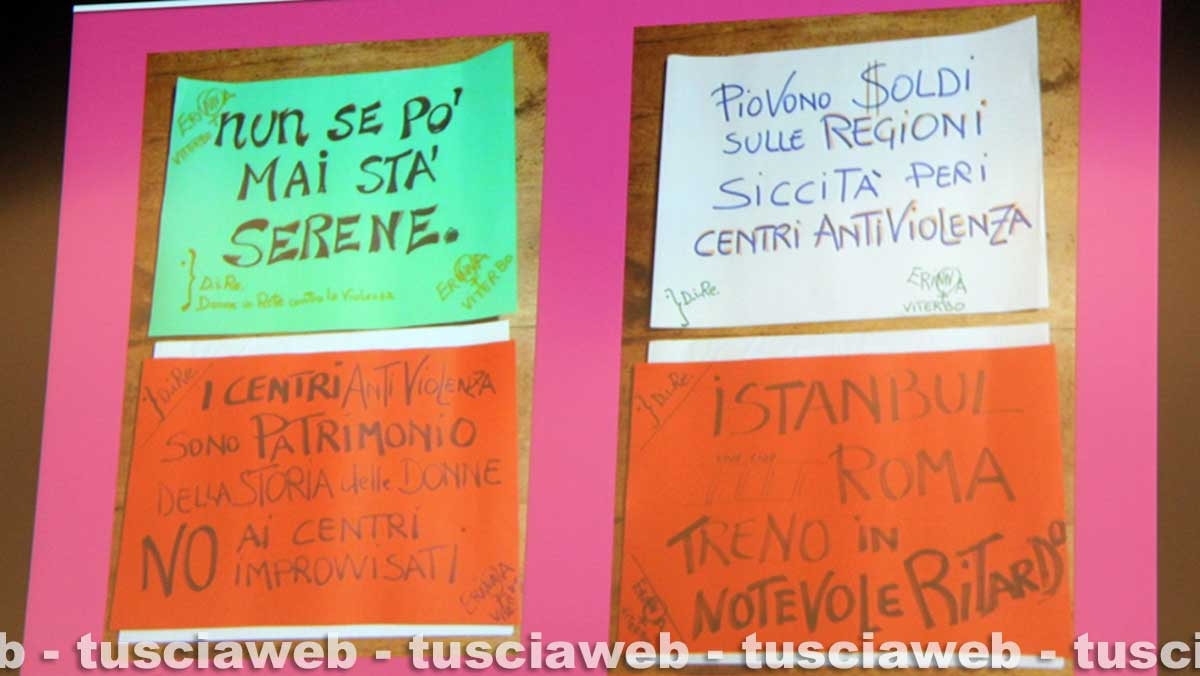 ERINNA
VITERBO
NUN SE PO'
MAI STA'
SERENE.
} D.i.Re.
Donne in Rete contro la Violenza
ERINNA
VITERBO
PIOVONO $OLDI
SULLE REGIONI
SICCITÀ PER I
CENTRI ANTIVIOLENZA
} D.i.Re.
ERINNA
VITERBO
} D.i.Re.
I CENTRI ANTIVIOLENZA
SONO PATRIMONIO
DELLA STORIA delle DONNE
NO AI CENTRI
IMPROVVISATI
ERINNA
VITERBO
} D.i.Re.
ISTANBUL
ROMA
TRENO IN
NOTEVOLE RITARDO
ERINNA
b - tusciaweb - tusciaweb - tusciaweb - tusciaweb - tusc